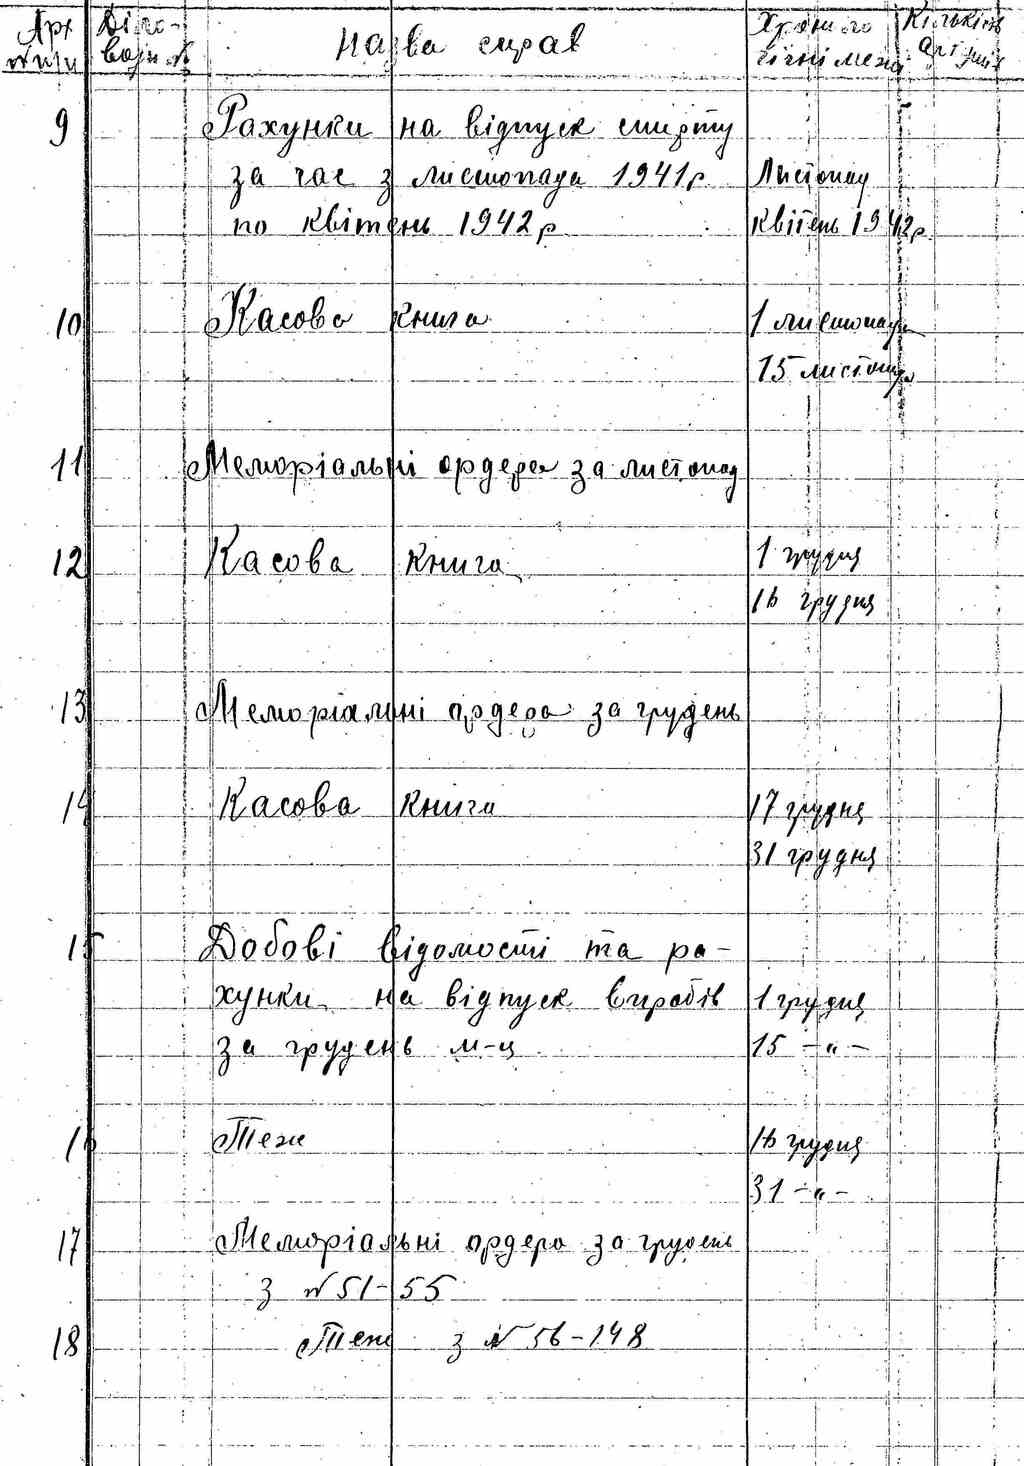 Арх № п/п Діло- вод. № Назва справ Хроноло гічні межі Кількість аркушів
9 Рахунки на відпуск спирту
за час з листопада 1941р. Листопад
по квітень 1942р Квітень 1942р
10 Касова книга 1 листопада
15 листопада
11 Меморіальні ордера за листопад
12 Касова книга 1 грудня
16 грудня
13 Меморіальні ордера за грудень
14 Касова книга 17 грудня
31 грудня
15 Добові відомості та ра-
хунки на відпуск виробів 1 грудня
за грудень м-ц 15 -"-
16 Теж 16 грудня
31 -"-
17 Меморіальні ордера за грудень
з №51-55
18 Теж з №56-148